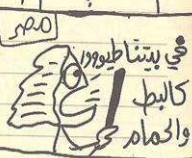 مصر
في بيتنا طيووور
كالبط
والحمام